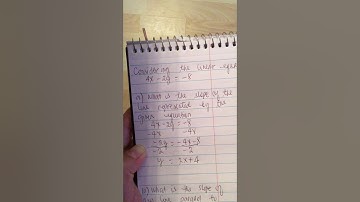 Considering the linear equa
4x - 2y = -8
a) What is the slope of the
line represented by the
given equation
4x - 2y = -8
-4x -4x
-2y = -4x - 8
-2 -2
y = 2x + 4
b) What is the slope of
line
to